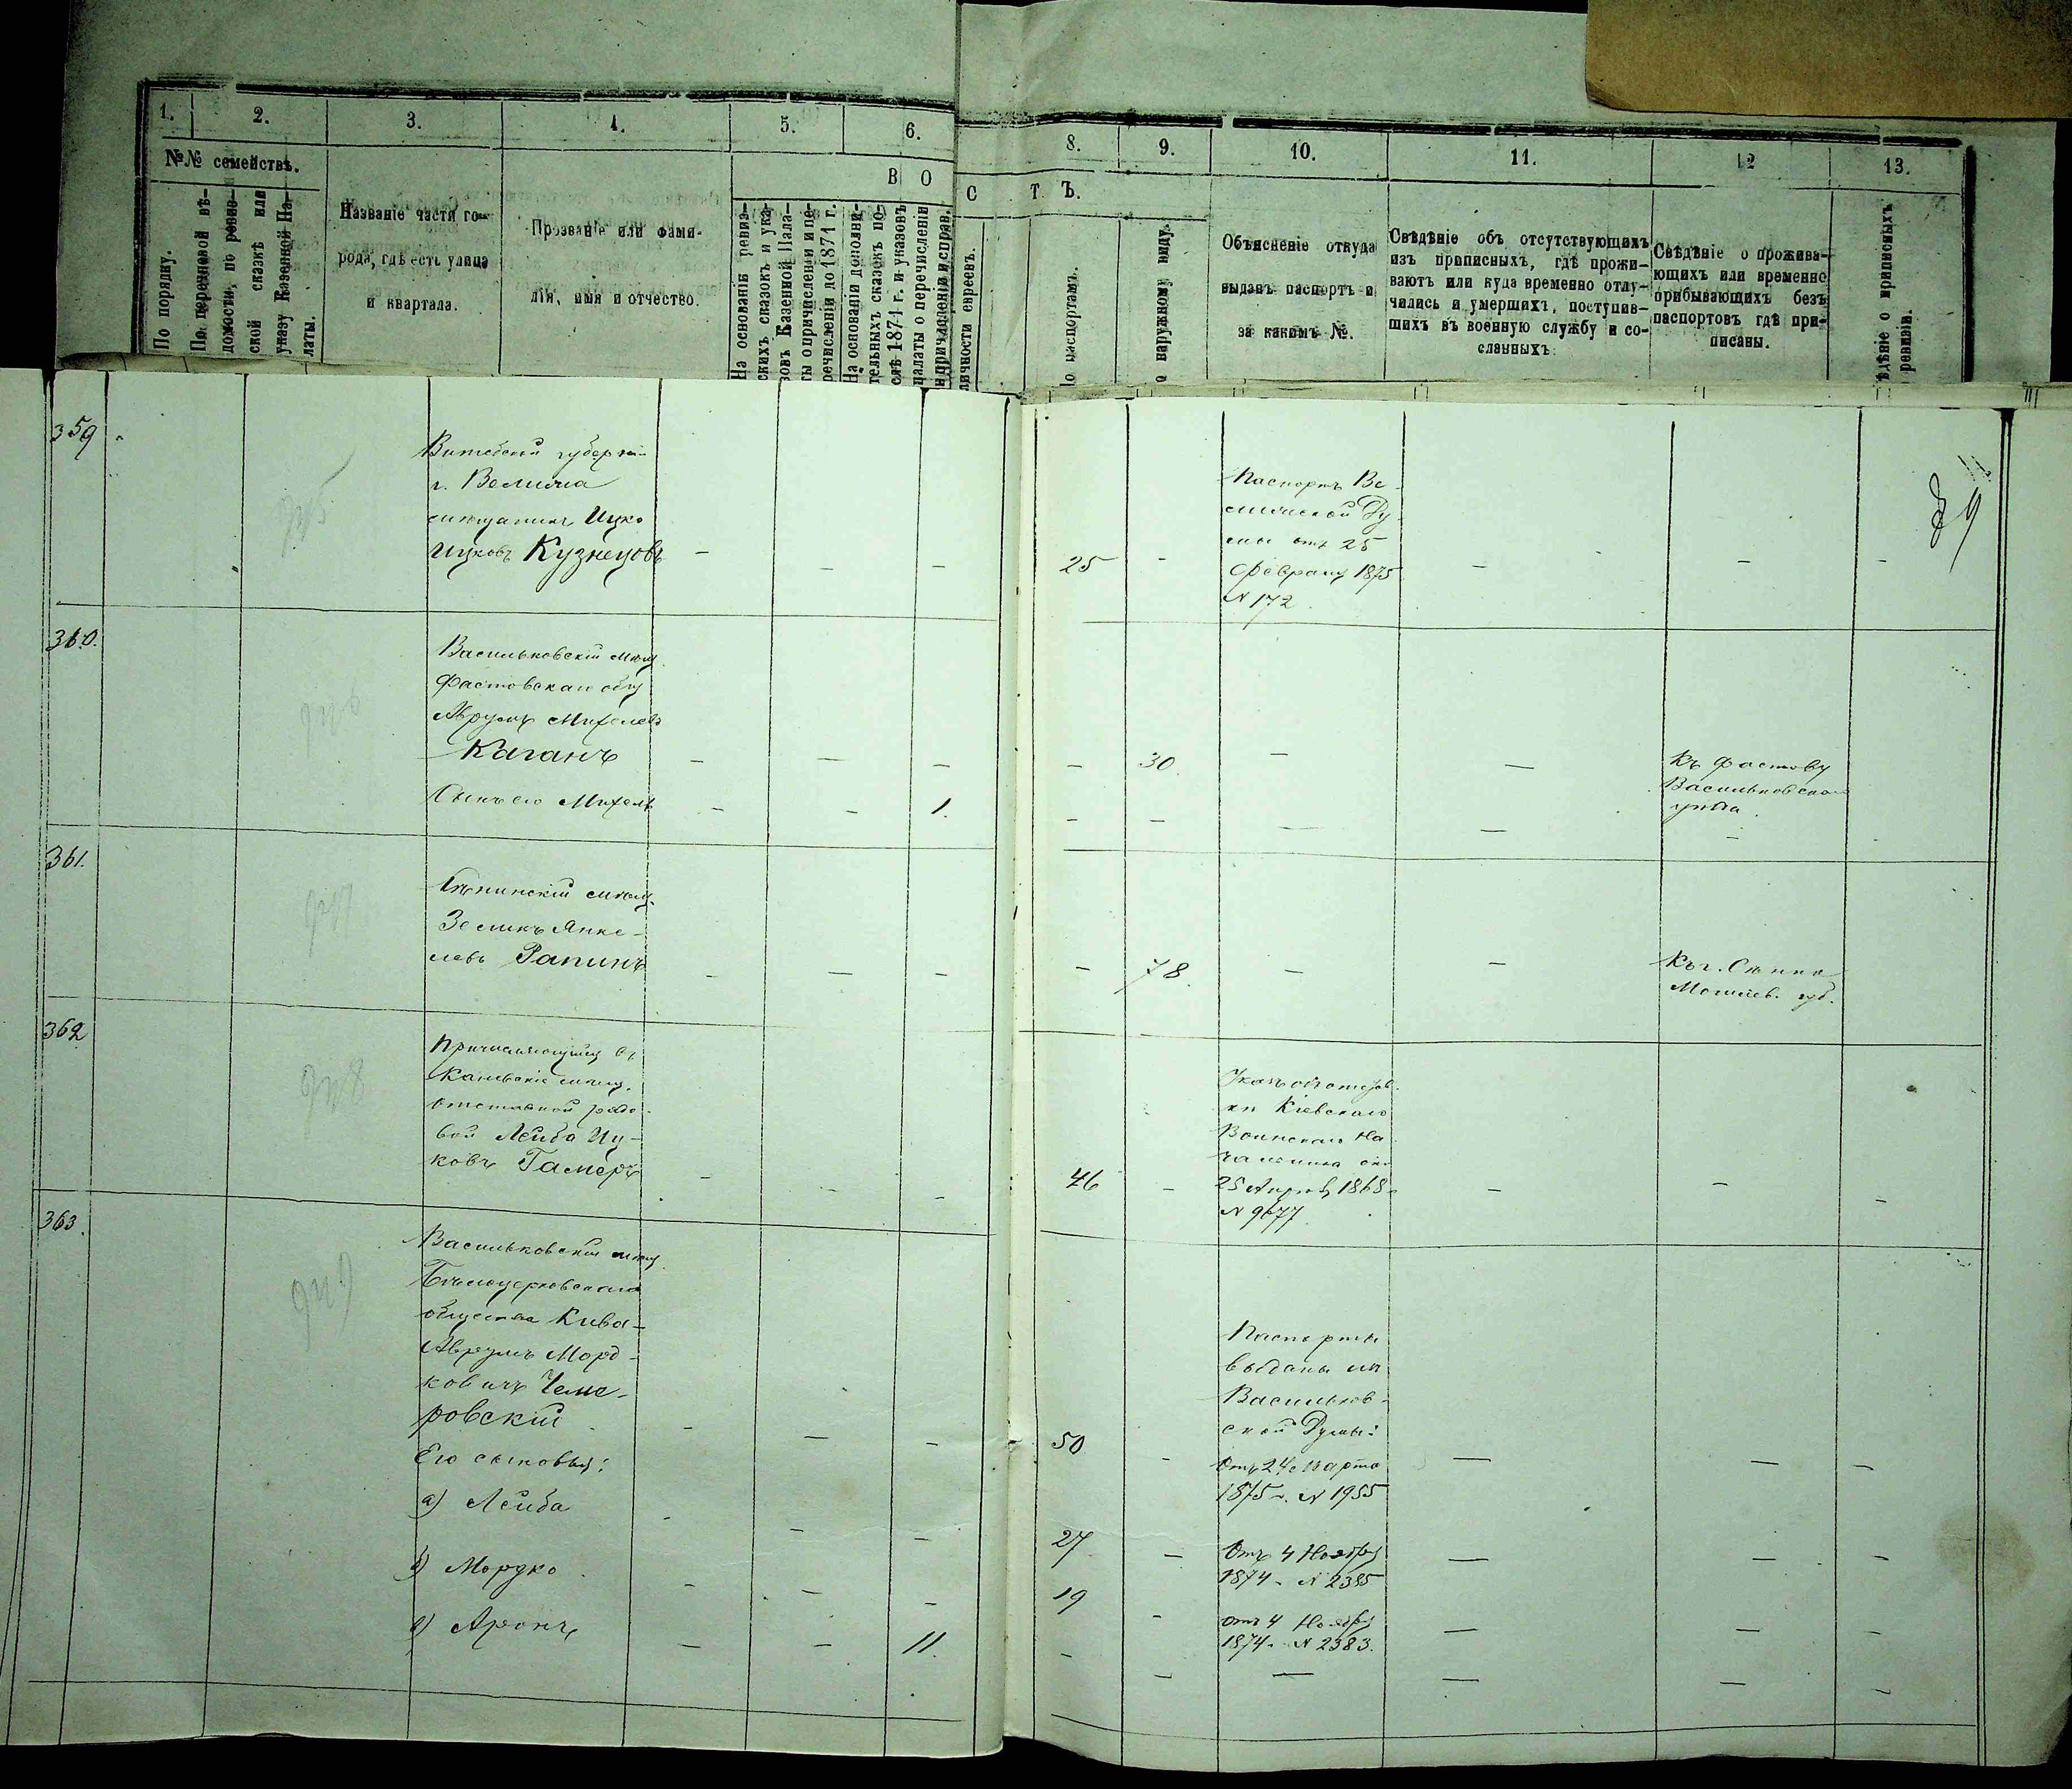 1. 2. 3. 4. 5. 6.
№№ семействъ.
По порядку.
По перечневой вѣ-
домости, по ревиз-
ской сказкѣ или
указу Казенной Па-
латы.
Названіе части го-
рода, гдѣ есть улица
и квартала.
Прозваніе или фами-
лія, имя и отчество.
В О
На основаніи ревиз-
скихъ сказокъ и ука-
зовъ Казенной Пала-
ты о причисленіи и пе-
речисленіи до 1871 г.
На основаніи дополни-
тельныхъ сказокъ по-
слѣ 1871 г. и указовъ
палаты о перечисленіи
и причисленіи и справ.
8. 9. 10. 11. 12 13.
С Т Ъ.
личности евреевъ.
о паспортамъ.
о наружному виду.
Объясненіе откуда
выданъ паспортъ и
за какимъ №.
Свѣдѣніе объ отсутствующихъ
изъ приписныхъ, гдѣ прожи-
ваютъ или куда временно отлу-
чились и умершихъ, поступив-
шихъ въ военную службу и со-
сланныхъ
Свѣдѣніе о прожива-
ющихъ или временно
прибывающихъ безъ
паспортовъ гдѣ при-
писаны.
ѣдѣніе о приписныхъ
ревизіи.
359
Витебской губерніи
г. Велижа
мѣщанинъ Ицко
Ицковъ Кузнецовъ
25
Паспортъ Ве-
лижской Ду-
мы отъ 25
Февраля 1875
N 172
360.
Васильковскій мѣщ.
Фастовскаго общ
Аврумъ Михелевъ
Каганъ
30.
Къ Фастову
Васильковскаго
уѣзда.
Сынъ его Михель
1.
361.
Сѣнинскій мѣщ.
Зеликъ Янке-
левъ Рапинъ
78.
Къ г. Сѣнно
Могилев. губ.
362
Причисляющійся въ
Каневскіе мѣщ.
отставной рядо-
вой Лейба Иц-
ковъ Гамеръ
46
Указъ объ отстав-
кѣ Кіевскаго
Воинскаго На-
чальника отъ
25 Апрѣля 1868
N 9677
363.
Васильковскій мѣщ.
Бѣлоцерковскаго
общества Кива-
Аврумъ Морд-
ковичъ Чеме-
ровскій
50
Паспорты
выданы изъ
Васильков-
ской Думы:
Отъ 24 Марта
1875 г. N 1955
Его сыновья:
а) Лейба
27
Отъ 4 Ноября
1874 N 2385
б) Мордко
19
отъ 4 Ноября
1874 N 2383.
в) Аронъ
11.